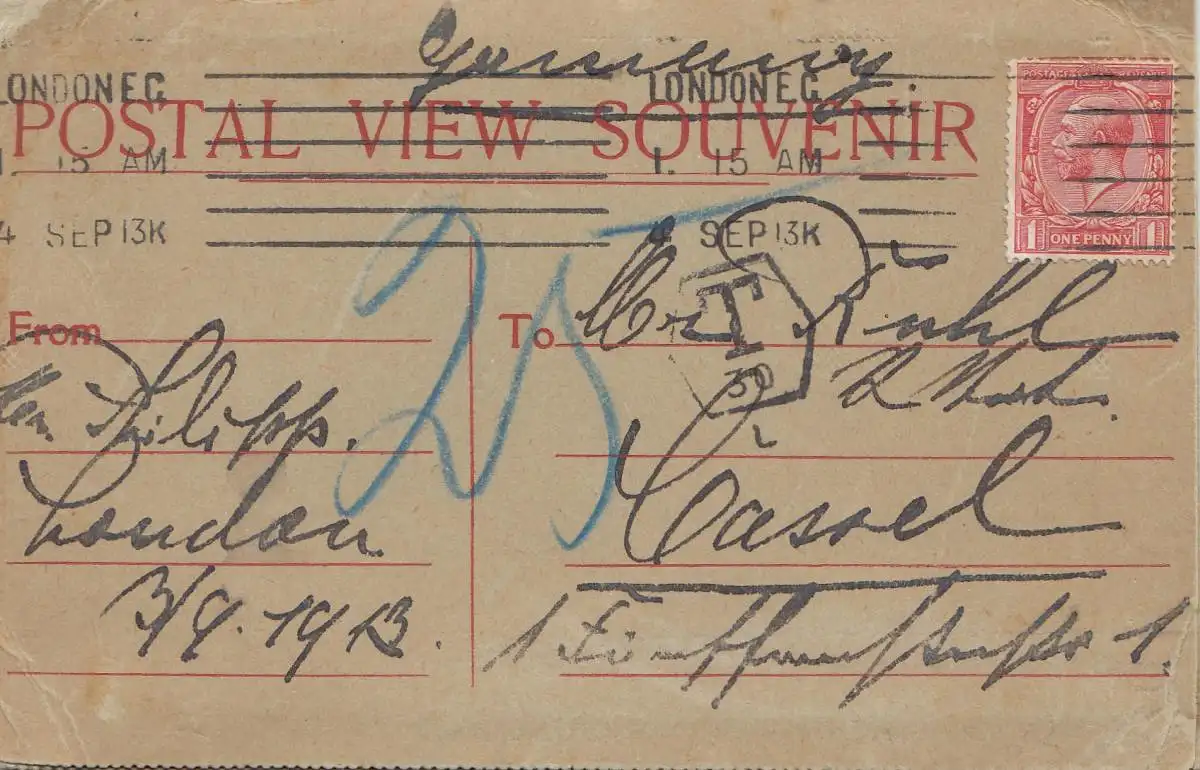 Germany.
LONDON E.C. LONDON E.C.
POSTAL VIEW SOUVENIR
1. 15 AM 1. 15 AM
4 SEP 13K 4 SEP 13K
POSTAGE REVENUE
1 ONE PENNY 1
25
T
50
From
Philipp.
London
3/9. 1913.
To
Kühl
Cassel
1 1.